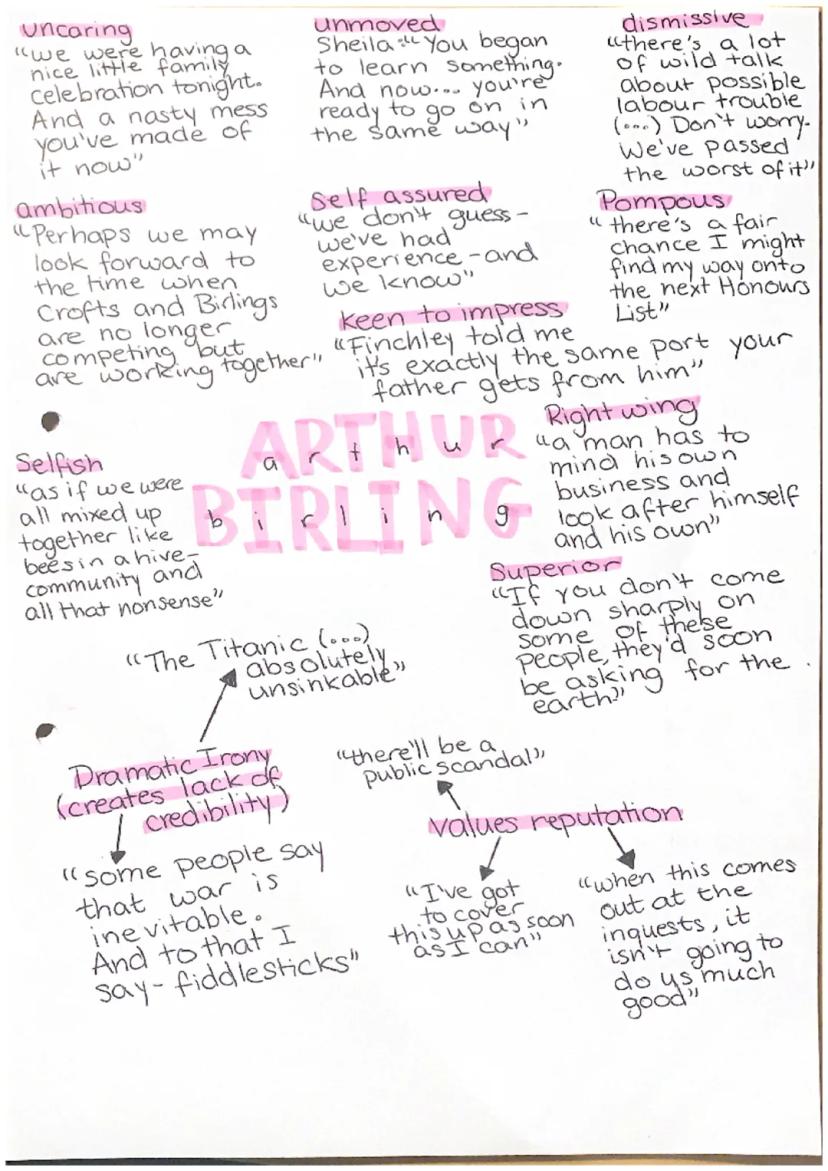 uncaring
"we were having a
nice little family
celebration tonight.
And a nasty mess
you've made of
it now"
unmoved
Sheila - "You began
to learn something.
And now... you're
ready to go on in
the same way"
dismissive
"there's a lot
of wild talk
about possible
labour trouble
(...) Don't worry.
We've passed
the worst of it"
ambitious
"Perhaps we may
look forward to
the time when
Crofts and Birlings
are no longer
competing but
are working together"
Self assured
"we don't guess -
we've had
experience - and
we know"
Pompous
"there's a fair
chance I might
find my way onto
the next Honours
List"
keen to impress
"Finchley told me
it's exactly the same port your
father gets from him"
ARTHUR
arthur
BIRLING
birling
Right wing
"a man has to
mind his own
business and
look after himself
and his own"
Selfish
"as if we were
all mixed up
together like
bees in a hive -
community and
all that nonsense"
Superior
"If you don't come
down sharply on
some of these
people, they'd soon
be asking for the
earth."
"The Titanic (...)
absolutely
unsinkable"
Dramatic Irony
(creates lack of
credibility)
"some people say
that war is
inevitable.
And to that I
say - fiddlesticks"
"there'll be a
public scandal"
values reputation
"I've got
to cover
this up as soon
as I can"
"when this comes
out at the
inquests, it
isn't going to
do us much
good"